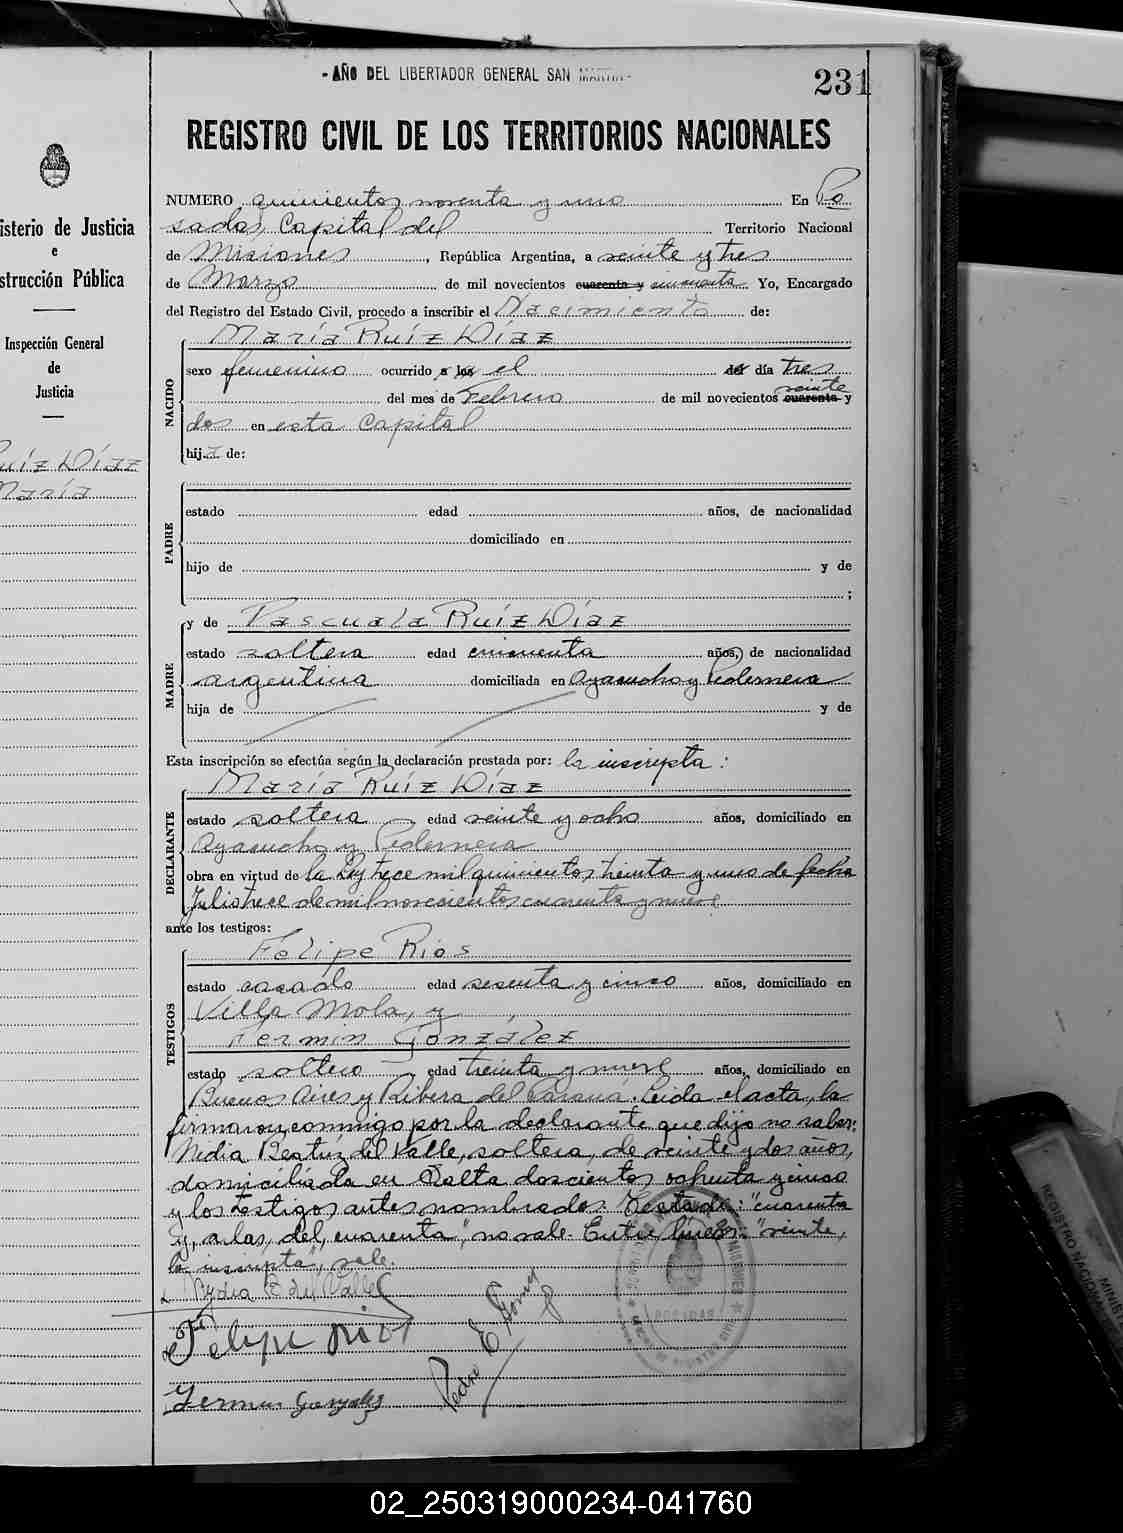 - AÑO DEL LIBERTADOR GENERAL SAN MARTIN -
231
REGISTRO CIVIL DE LOS TERRITORIOS NACIONALES
isterio de Justicia
e
strucción Pública
Inspección General
de
Justicia
Ruíz Díaz
María
NUMERO quinientos noventa y uno En Po
sadas, Capital del Territorio Nacional
de Misiones, República Argentina, a veinte y tres
de Marzo de mil novecientos cuarenta y cincuenta Yo, Encargado
del Registro del Estado Civil, procedo a inscribir el Nacimiento de:
María Ruíz Díaz
NACIDO
sexo femenino ocurrido a las el del día tres
del mes de Febrero de mil novecientos cuarenta y veinte
dos en esta Capital
hija de:
PADRE
estado edad años, de nacionalidad
domiciliado en
hijo de y de
;
y de Pascuala Ruíz Díaz
MADRE
estado soltera edad cincuenta años, de nacionalidad
argentina domiciliada en Ayacucho y Pedernera
hija de y de
Esta inscripción se efectúa según la declaración prestada por: la inscripta:
María Ruíz Díaz
DECLARANTE
estado soltera edad veinte y ocho años, domiciliado en
Ayacucho y Pedernera
obra en virtud de la Ley trece mil quinientos treinta y uno de fecha
Julio trece de mil novecientos cuarenta y nueve
ante los testigos:
Felipe Rios
TESTIGOS
estado casado edad sesenta y cinco años, domiciliado en
Villa Mola, y
Fermin González
estado soltero edad treinta y nueve años, domiciliado en
Buenos Aires y Ribera del Paraná. Leida el acta, la
firmaron conmigo por la declarante que dijo no saber:
Nidia Beatríz del Valle, soltera, de veinte y dos años,
domiciliada en Salta doscientos ochenta y cinco
y los testigos antes nombrados. Testado: "cuarenta
y, a las, del, cuarenta", no vale. Entre líneas: "veinte,
la inscripta", vale.
Nydia B del Valle
Felipe Rios
Pedro E Gomez
Fermin Gonzalez
POSADAS
REGISTRO NACIONAL
MINIST
02_250319000234-041760